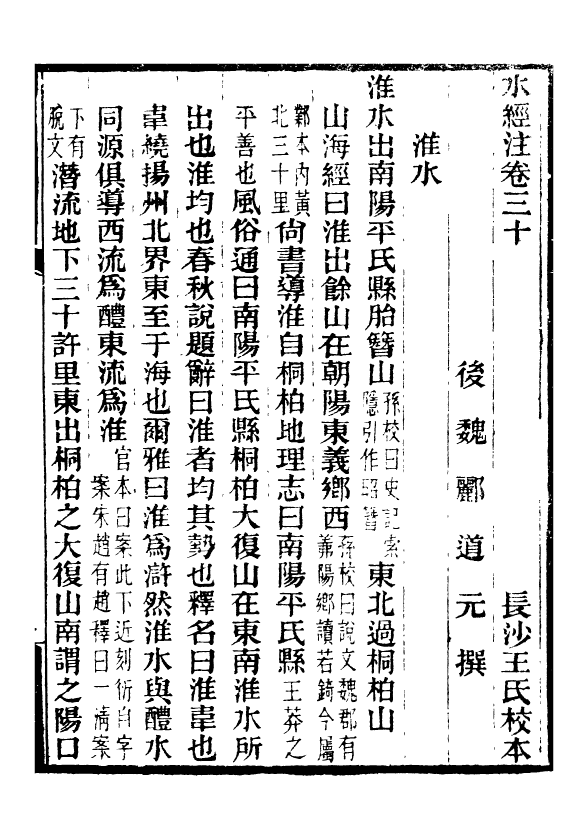 水經注卷三十　長沙王氏校本
後魏酈道元撰
淮水
淮水出南陽平氏縣胎簪山孫校曰史記索隱引作昭簪東北過桐柏山
山海經曰淮出餘山在朝陽東義鄉西孫校曰說文魏郡有義陽鄉讀若錡今屬
鄴本內黃北三十里尙書導淮自桐柏地理志曰南陽平氏縣王莽之
平善也風俗通曰南陽平氏縣桐柏大復山在東南淮水所
出也淮均也春秋說題辭曰淮者均其勢也釋名曰淮韋也
韋繞揚州北界東至于海也爾雅曰淮爲滸然淮水與醴水
同源俱導西流爲醴東流爲淮官本曰案此下近刻衍自字案朱趙有趙釋曰一淸案
下有脫文潛流地下三十許里東出桐柏之大復山南謂之陽口